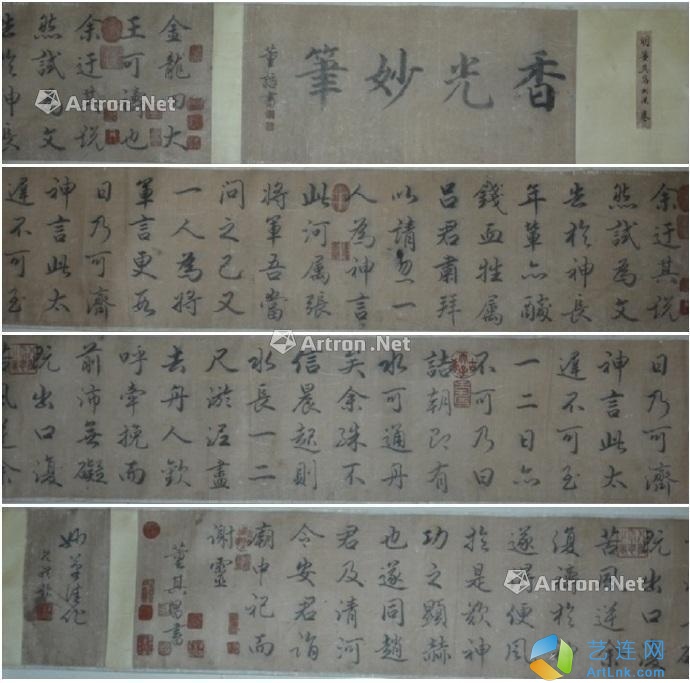 香光妙筆
董誥書
金龍四大
王可禱也
余迂其說
然試為文
告於神長
余迂其說
然試為文
告於神長
年輩亦醵
錢血牲属
呂君肅拜
以請忽一
人為神言
此河属張
將軍吾當
問之已又
一人為將
軍言更
日乃可濟
神言此太
遲不可至
日乃可濟
神言此太
遲不可至
一二日亦
不可乃曰
詰朝即有
水可通舟
矣余殊不
信晨起則
水長一二
尺淤盡
去舟人歡
呼牽挽而
前沛無礙
既出口復
苦風逆余
既出口復
苦風逆余
復禱於神
遂得便風
於是欽神
功之顯赫
也遂同趙
君及清河
令安君詣
廟中祀而
謝靈
董其昌書
妙筆佳作
Artron.Net
Artron.Net
Artron.Net
Artron.Net
Artron.Net
艺连网
艺连网.com